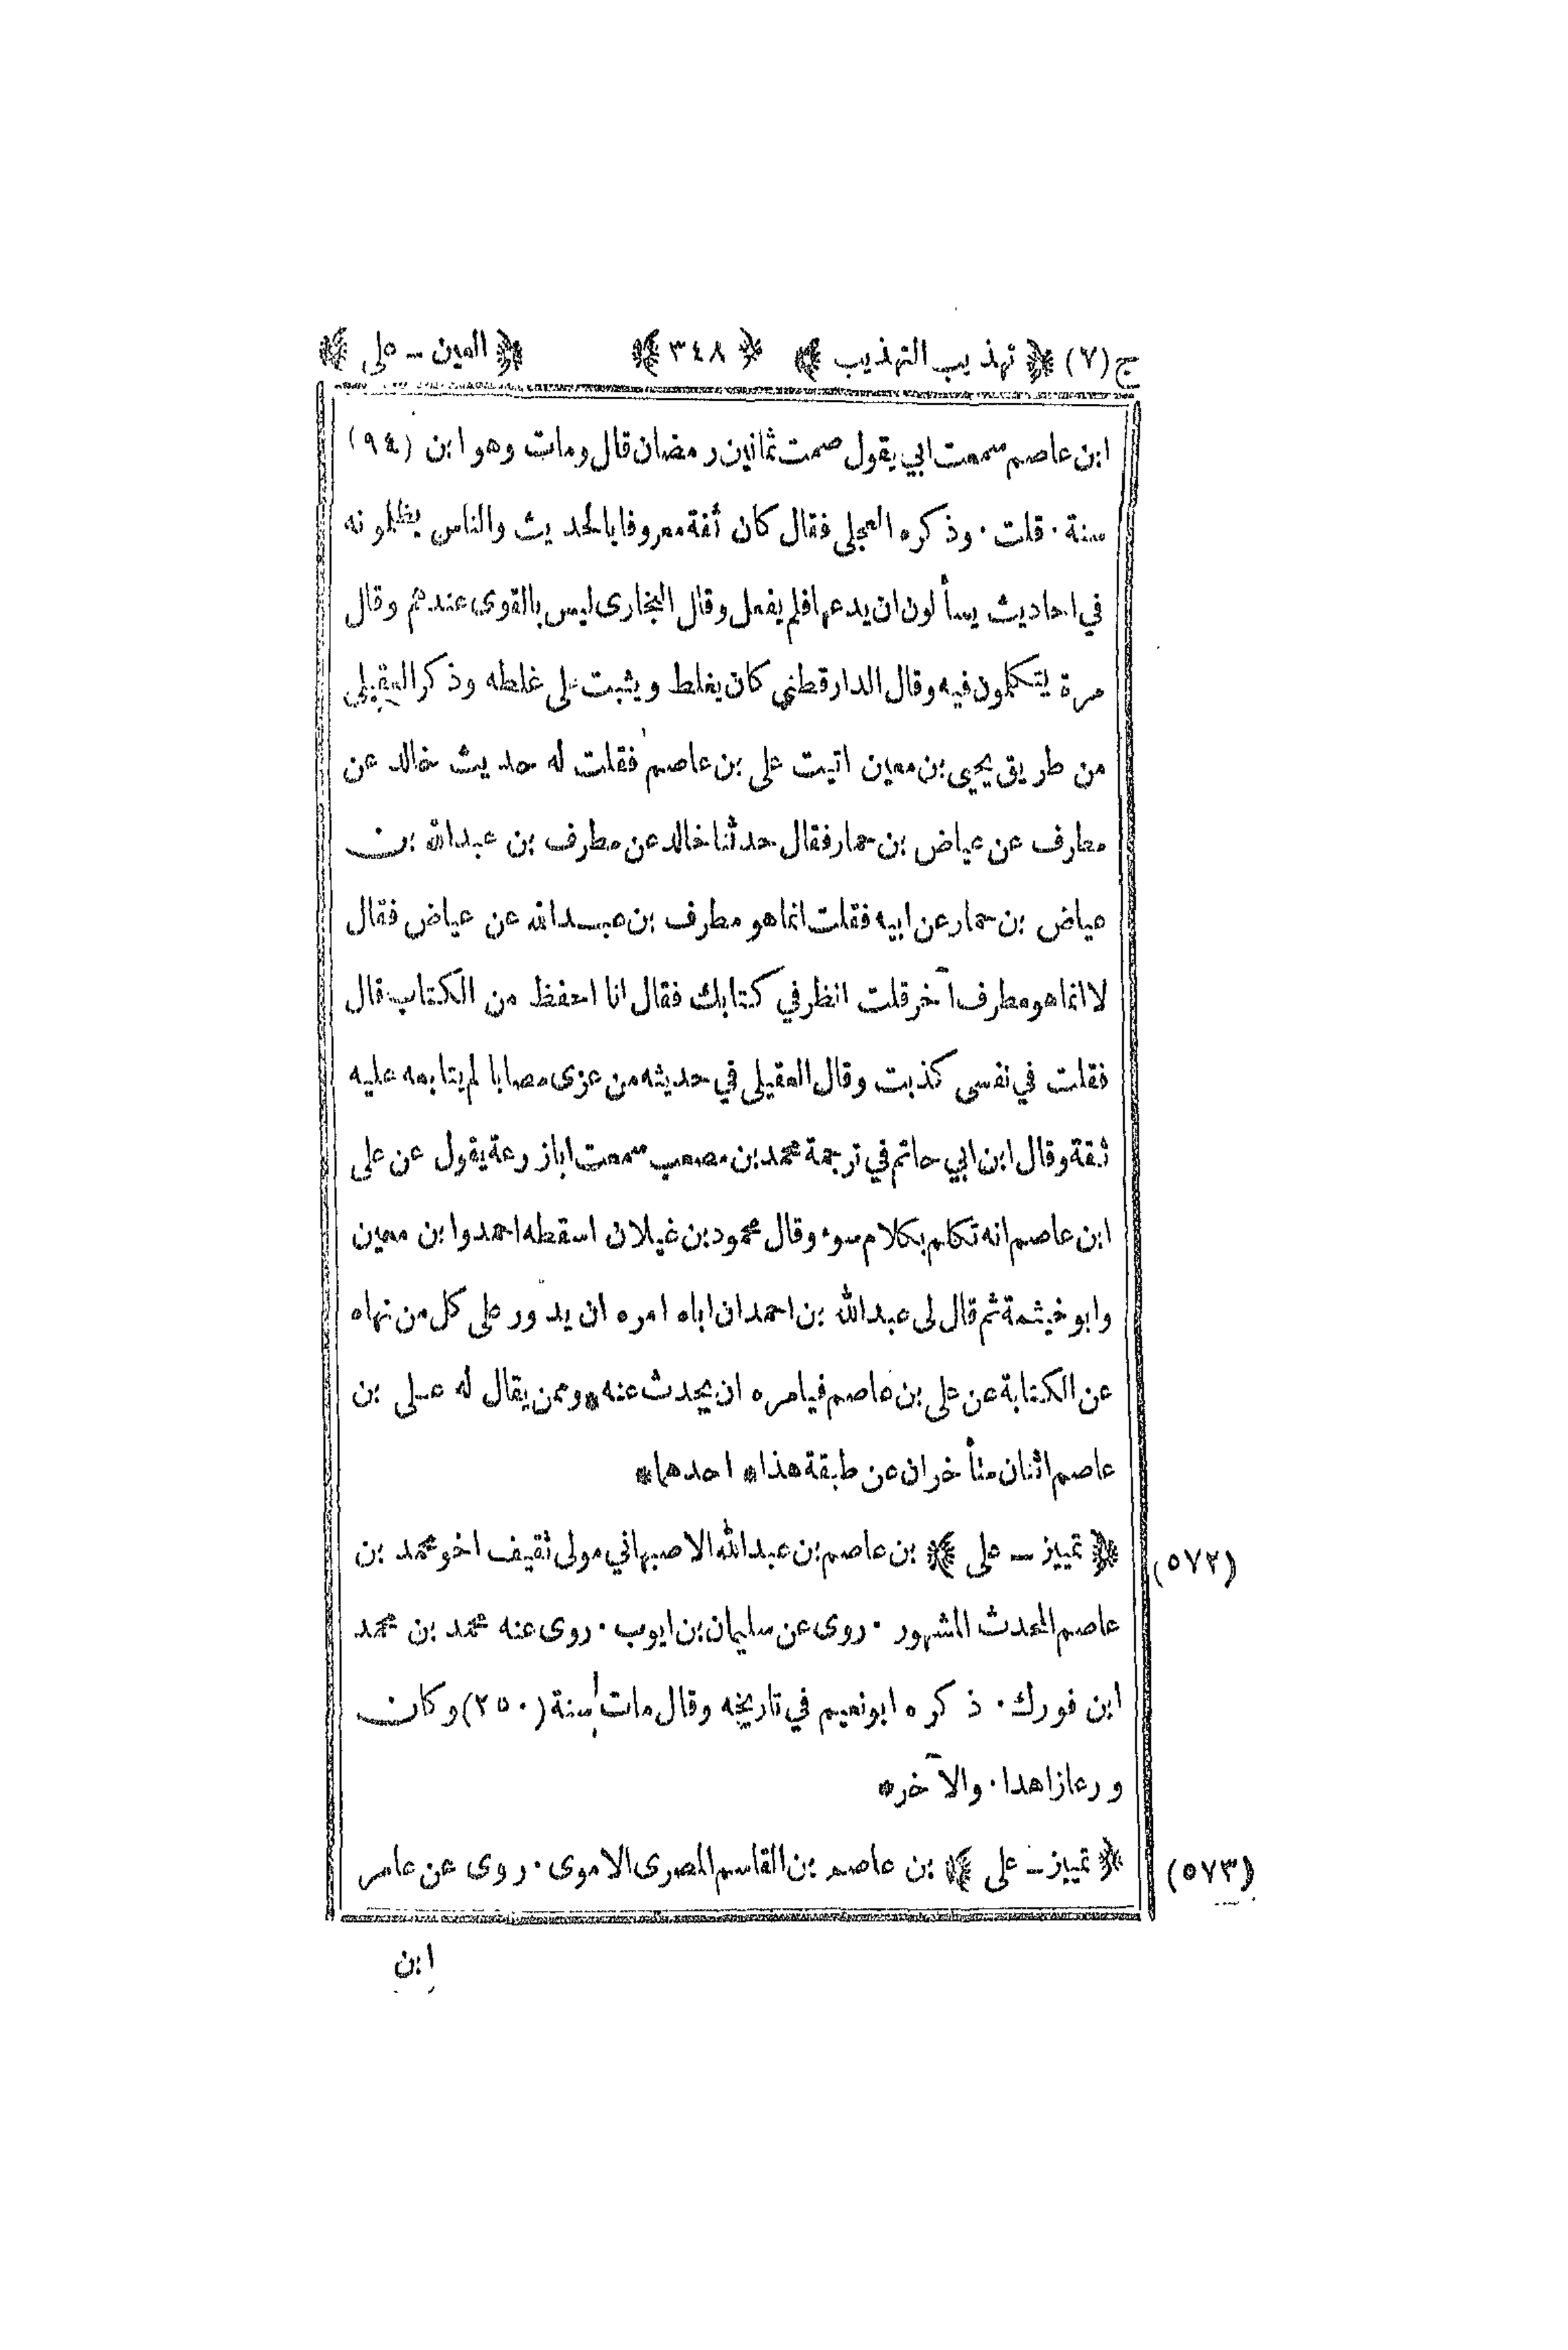 ج (٧) ﴿ تهذيب التهذيب ﴾ ﴿ ٣٤٨ ﴾ ﴿ العين – على ﴾
ابن عاصم سمعت ابي يقول صمت ثمانين رمضان قال ومات وهو ابن (٩٤)
سنة · قلت · وذكره العجلى فقال كان ثقة معروفا بالحديث والناس يظلمونه
في احاديث يسألون ان يدعها فلم يفعل وقال البخارى ليس بالقوى عندهم وقال
مرة يتكلمون فيه وقال الدارقطني كان يغلط ويثبت على غلطه وذكر العقيلي
من طريق يحيى بن معين اتيت على بن عاصم فقلت له حديث خالد عن
مطرف عن عياض بن حمار فقال حدثنا خالد عن مطرف بن عبدالله بن
عياض بن حمار عن ابيه فقلت انما هو مطرف بن عبدالله عن عياض فقال
لا انما هو مطرف آخر قلت انظر في كتابك فقال انا احفظ من الكتاب قال
فقلت في نفسى كذبت وقال العقيلى في حديثه من عزى مصابا لم يتابعه عليه
ثقة وقال ابن ابي حاتم في ترجمة محمد بن مصعب سمعت ابازرعة يقول عن على
ابن عاصم انه تكلم بكلام سوء وقال محمود بن غيلان اسقطه احمد وابن معين
وابو خيثمة ثم قال لى عبدالله بن احمد ان اباه امره ان يدور على كل من نهاه
عن الكتابة عن على بن عاصم فيامره ان يحدث عنه * وممن يقال له على بن
عاصم اثنان متأخران عن طبقة هذا * احدهما *
(٥٧٢) ﴿ تمييز – على ﴾ بن عاصم بن عبدالله الاصبهاني مولى ثقيف اخو محمد بن
عاصم المحدث المشهور · روى عن سليمان بن ايوب · روى عنه محمد بن محمد
ابن فورك · ذكره ابونعيم في تاريخه وقال مات سنة (٢٥٠) وكان
ورعا زاهدا · والآخر *
(٥٧٣) ﴿ تمييز – على ﴾ بن عاصم بن القاسم المصرى الاموى · روى عن عامر
ابن